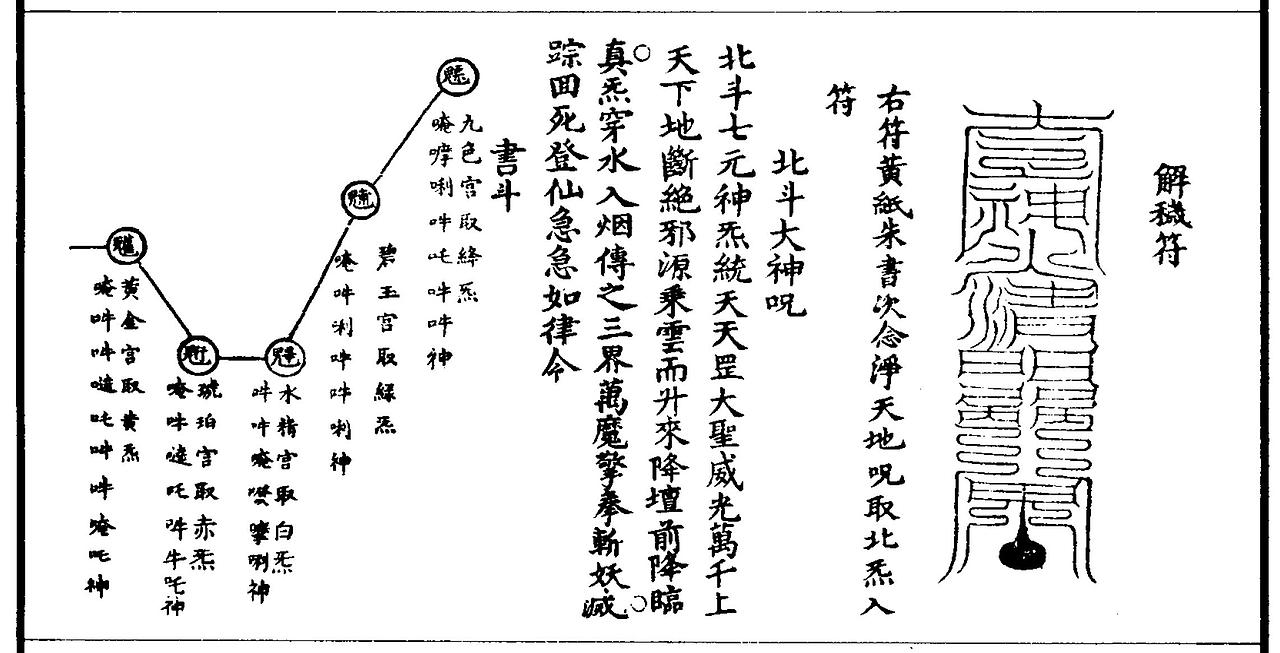 解穢符
右符黄紙朱書次念淨天地呪取北炁入
符
北斗大神呪
北斗七元神炁統天天罡大聖威光萬千上
天下地斷絕邪源乘雲而升來降壇前降臨
真炁穿水入烟傳之三界萬魔擎拳斬妖滅
踪回死登仙急急如律令
書斗
九色宮取絳炁
唵唎吽吒吽吽神
碧玉宮取綠炁
唵吽唎吽吽唎神
水精宮取白炁
吽吽唵唎神
琥珀宮取赤炁
唵吽噠吒吽牛吒神
黄金宮取黄炁
唵吽吽噠吒吽吽唵吒神